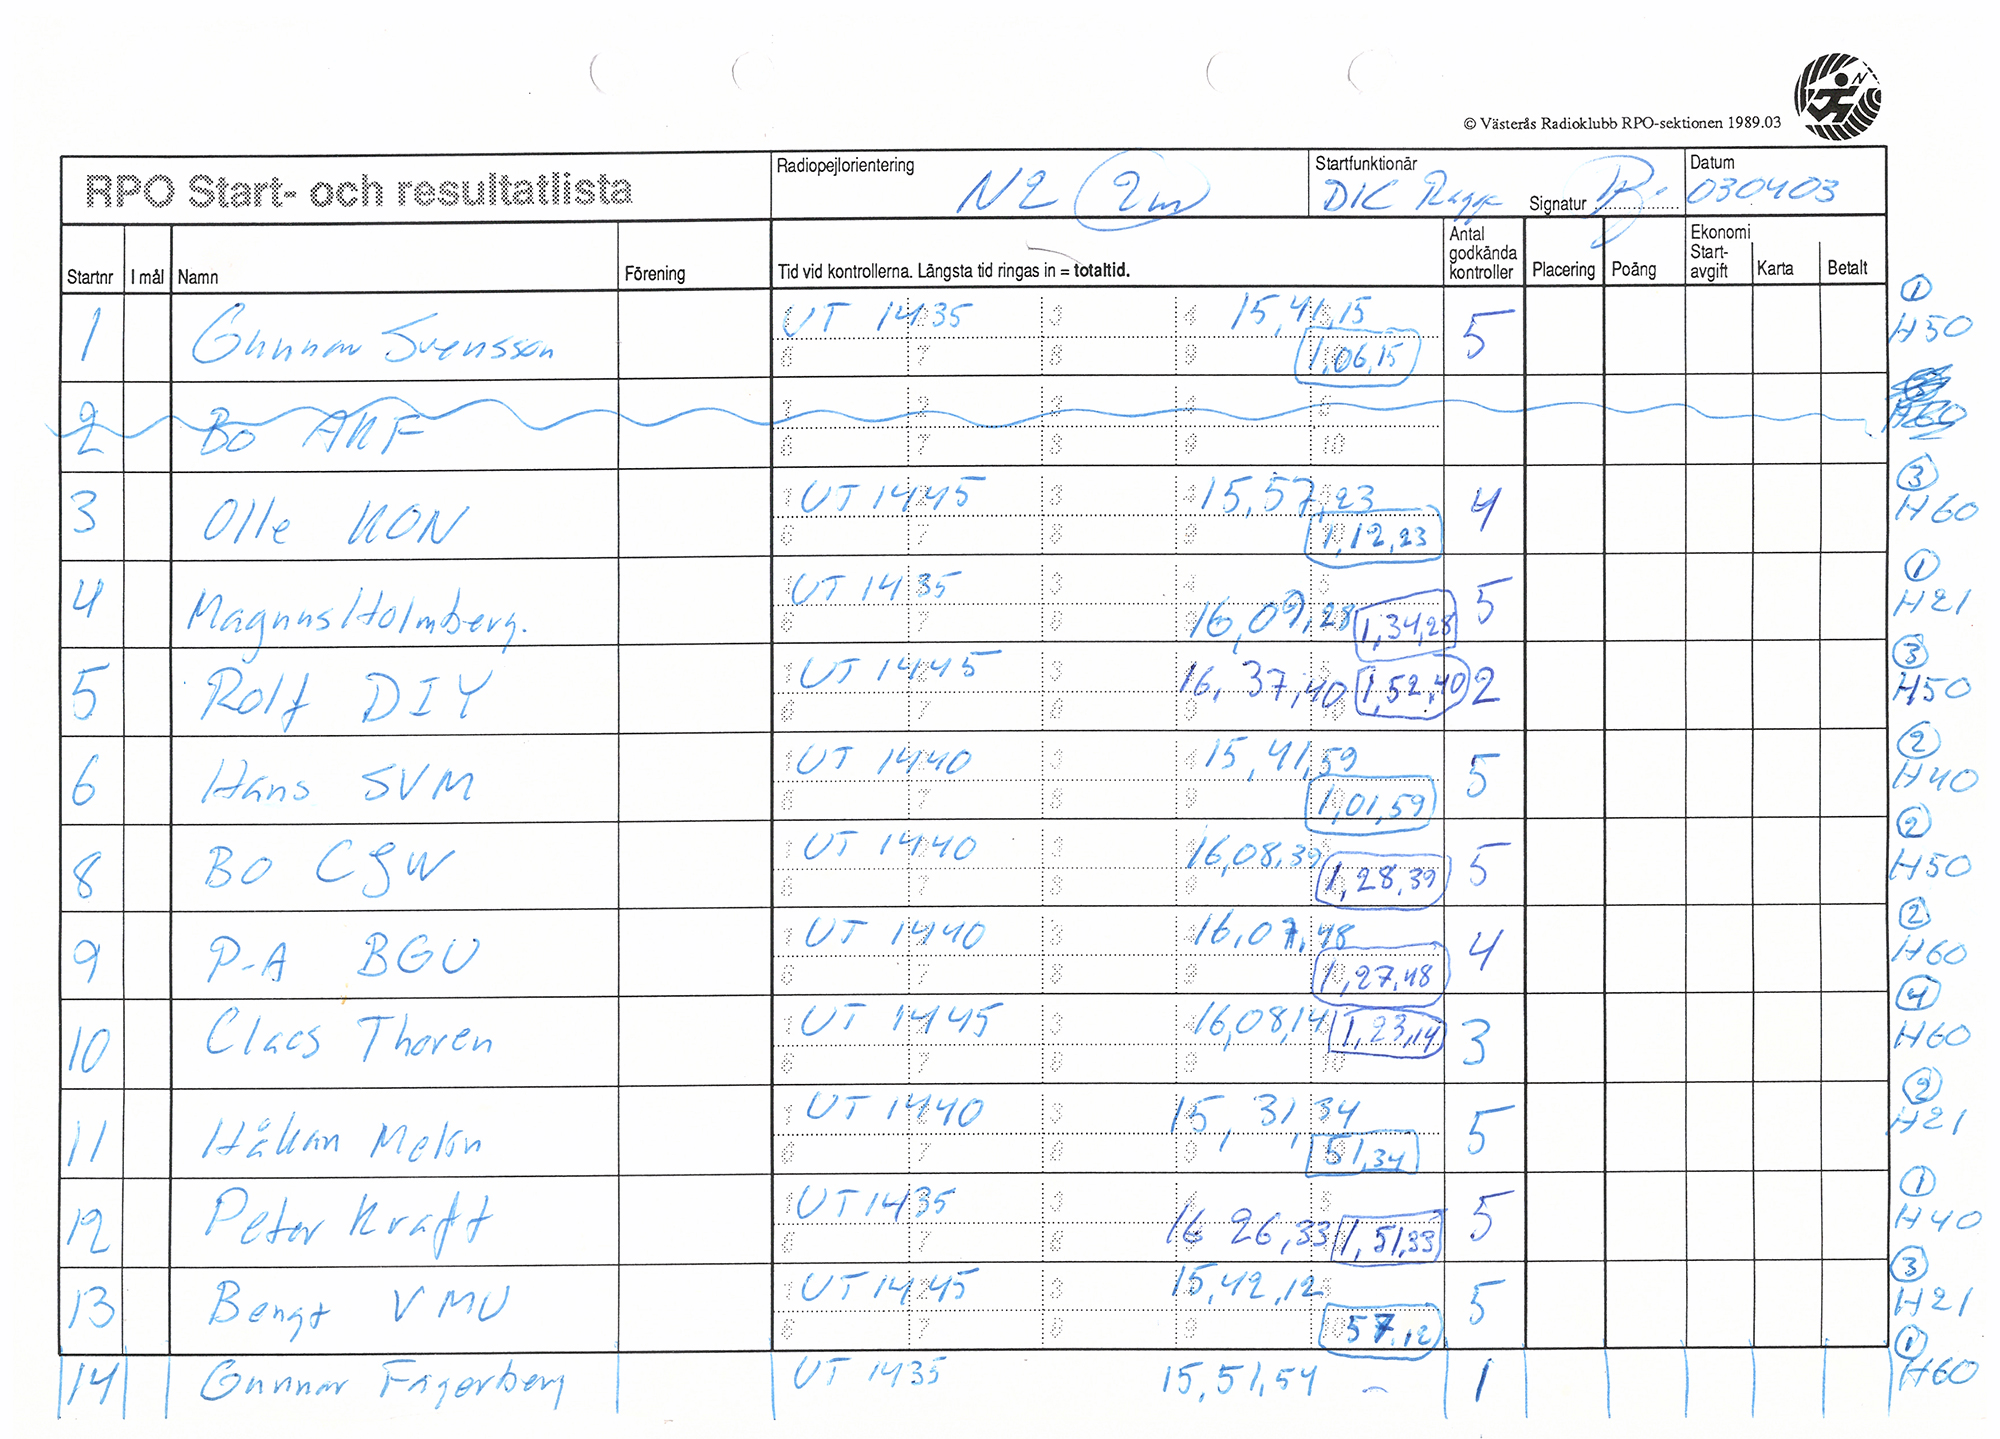 © Västerås Radioklubb RPO-sektionen 1989.03
RPO Start- och resultatlista
Radiopejlorientering
N2 2m
Startfunktionär
DIC Ragge
Signatur
Datum
030403
Startnr I mål Namn Förening Tid vid kontrollerna. Längsta tid ringas in = totaltid. Antal godkända kontroller Placering Poäng Ekonomi Start-avgift Karta Betalt
1 Gunnar Svensson UT 1435 15,41,15 1,06,15 5 1 H50
2 Bo AKF
3 Olle KON UT 1445 15,57,23 1,12,23 4 3 H60
4 Magnus Holmberg. UT 1435 16,09,28 1,34,28 5 1 H21
5 Rolf DIY UT 1445 16,37,40 1,52,40 2 3 H50
6 Hans SVM UT 1440 15,41,59 1,01,59 5 2 H40
8 Bo CGW UT 1440 16,08,39 1,28,39 5 2 H50
9 P-A BGU UT 1440 16,07,48 1,27,48 4 2 H60
10 Claes Thoren UT 1445 16,08,14 1,23,14 3 4 H60
11 Håkan Melin UT 1440 15,31,34 51,34 5 2 H21
12 Peter Kraft UT 1435 16 26,33 1,51,33 5 1 H40
13 Bengt VMU UT 1445 15,42,12 57,12 5 3 H21
14 Gunnar Fagerberg UT 1435 15,51,54 — 1 1 H60